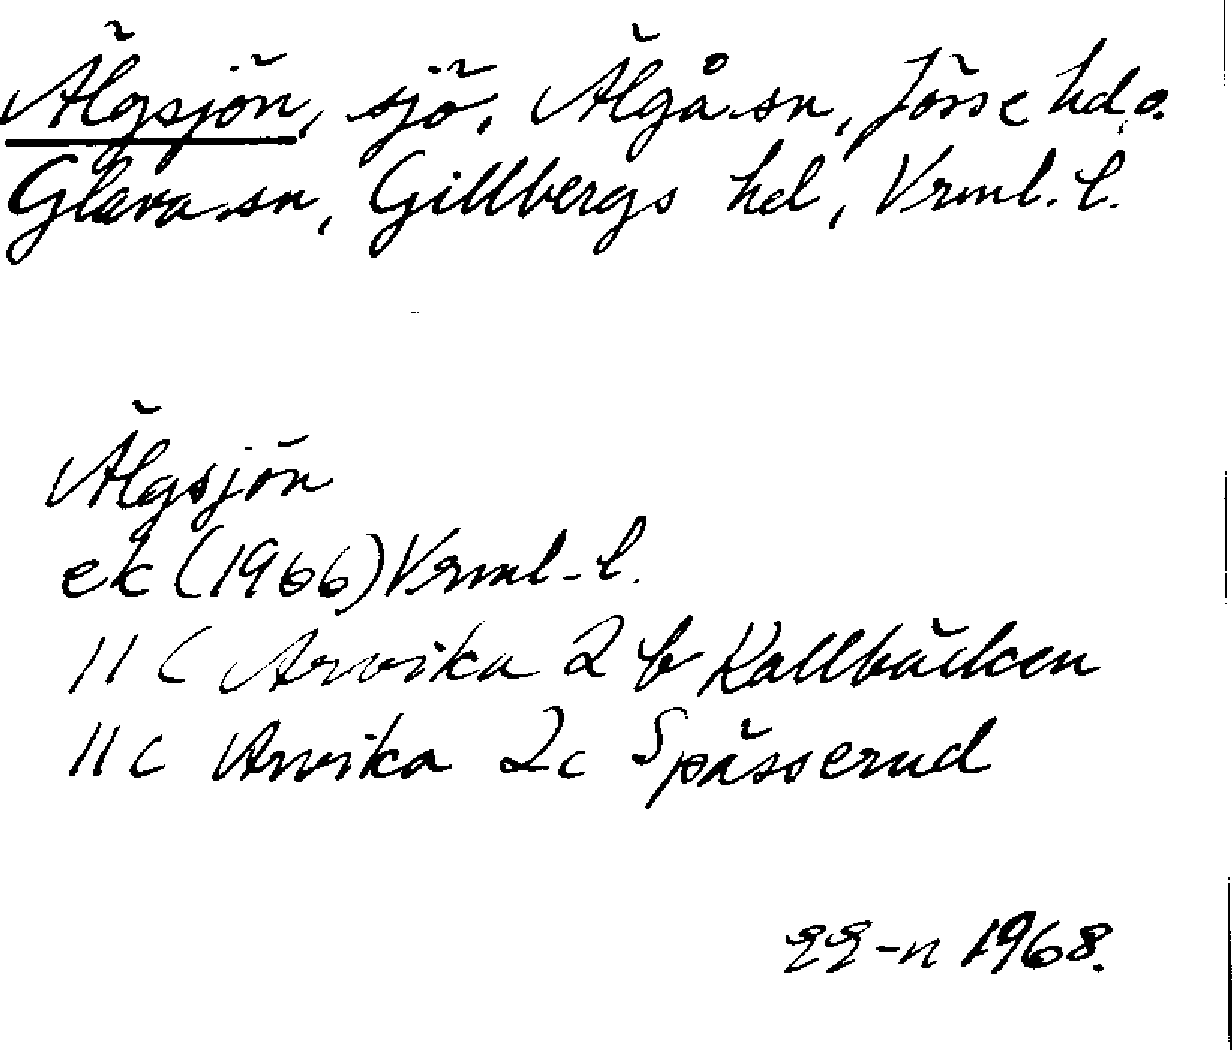 Älgsjön, sjö, Älgå sn, Jösse hd o.
Glava sn, Gillbergs hd, Vrml. l.
Älgsjön
ek (1966) Vrml. l.
11 C Arvika 2 b Kallbäcken
11 C Arvika 2c Spässerud
1968.